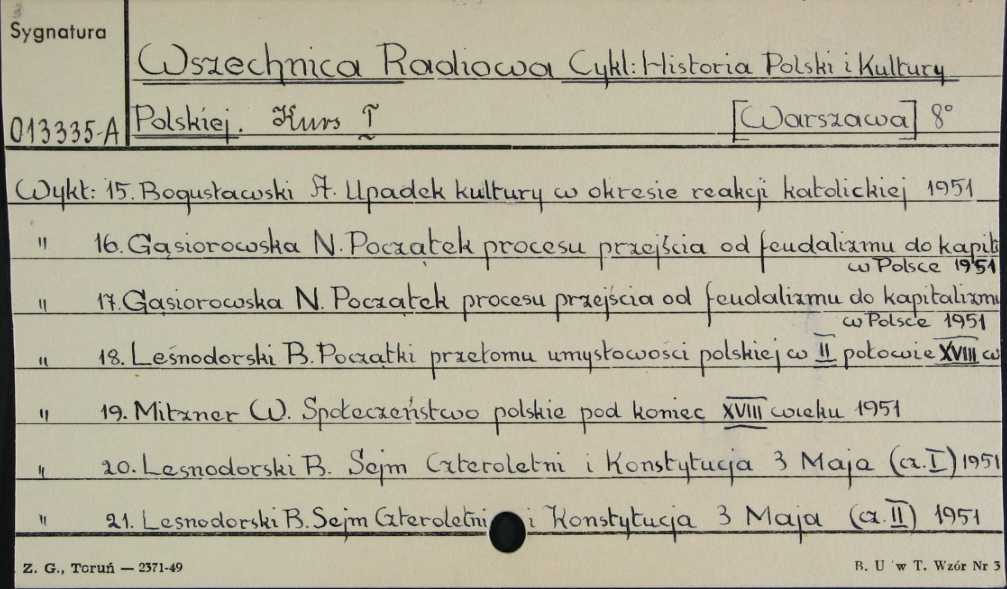 Sygnatura
Wszechnica Radiowa Cykl: Historia Polski i Kultury
013335-A Polskiej. Kurs I [Warszawa] 8°
Wykł: 15. Bogusławski A. Upadek kultury w okresie reakcji katolickiej 1951
" 16. Gąsiorowska N. Początek procesu przejścia od feudalizmu do kapit
w Polsce 1951
" 17. Gąsiorowska N. Początek procesu przejścia od feudalizmu do kapitalizmu
w Polsce 1951
" 18. Leśnodorski B. Początki przełomu umysłowości polskiej w II połowie XVIII w
" 19. Mitzner W. Społeczeństwo polskie pod koniec XVIII wieku 1951
" 20. Lesnodorski B. Sejm Czteroletni i Konstytucja 3 Maja (cz. I) 1951
" 21. Lesnodorski B. Sejm Czteroletni i Konstytucja 3 Maja (cz. II) 1951
Z. G., Toruń — 2371-49 B. U w T. Wzór Nr 3